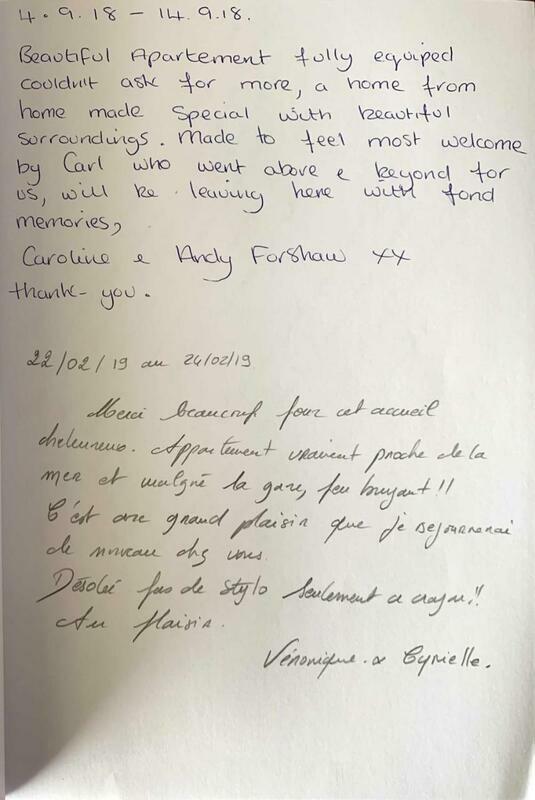 4.9.18 - 14.9.18.
Beautiful Apartement fully equiped
couldn't ask for more, a home from
home made Special with beautiful
surroundings. Made to feel most welcome
by Carl who went above & beyond for
us, will be leaving here with fond
memories,
Caroline & Andy Forshaw xx
thank-you.
22/02/19 au 24/02/19
Merci beaucoup pour cet accueil
cheleureux. Appartement vraiment proche de la
mer et malgré la gare, peu bruyant!!
C'est avec grand plaisir que je sejournerai
de nouveau chez vous.
Désolée pas de stylo seulement ce crayon!!
Au plaisir.
Véronique & Cyrielle.